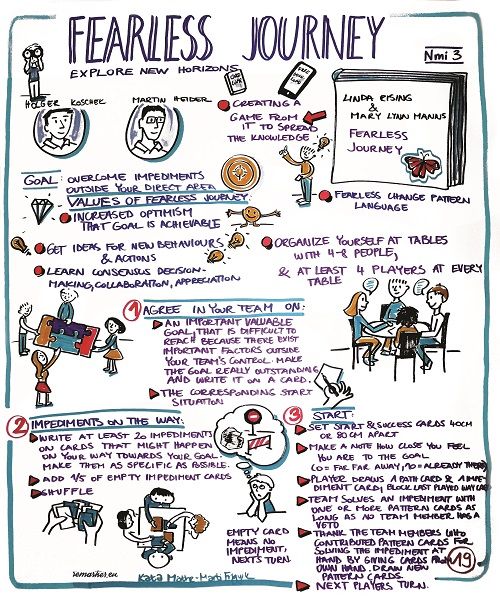 FEARLESS JOURNEY
EXPLORE NEW HORIZONS
Nmi 3
HOLGER KOSCHEK
MARTIN HEIDER
CREATING A
GAME FROM
IT TO SPREAD
THE KNOWLEDGE
LINDA RISING
&
MARY LYNN MANNS
FEARLESS
JOURNEY
FEARLESS CHANGE PATTERN
LANGUAGE
GOAL: OVERCOME IMPEDIMENTS
OUTSIDE YOUR DIRECT AREA
VALUES OF FEARLESS JOURNEY
INCREASED OPTIMISM
THAT GOAL IS ACHIEVABLE
GET IDEAS FOR NEW BEHAVIOURS
& ACTIONS
LEARN CONSENSUS DECISION-
MAKING, COLLABORATION, APPRECIATION
ORGANIZE YOURSELF AT TABLES
WITH 4-8 PEOPLE,
& AT LEAST 4 PLAYERS AT EVERY
TABLE
1 AGREE IN YOUR TEAM ON:
AN IMPORTANT VALUABLE
GOAL, THAT IS DIFFICULT TO
REACH BECAUSE THERE EXIST
IMPORTANT FACTORS OUTSIDE
YOUR TEAM'S CONTROL. MAKE
THE GOAL REALLY OUTSTANDING
AND WRITE IT ON A CARD.
THE CORRESPONDING START
SITUATION
2 IMPEDIMENTS ON THE WAY:
WRITE AT LEAST 20 IMPEDIMENTS
ON CARDS THAT MIGHT HAPPEN
ON YOUR WAY TOWARDS YOUR GOAL.
MAKE THEM AS SPECIFIC AS POSSIBLE.
ADD 1/5 OF EMPTY IMPEDIMENT CARDS
SHUFFLE
EMPTY CARD
MEANS NO
IMPEDIMENT,
NEXTS TURN.
3 START:
SET START & SUCCESS CARDS 40CM
OR 80CM APART
MAKE A NOTE HOW CLOSE YOU FEEL
YOU ARE TO THE GOAL
(0 = FAR FAR AWAY, 10 = ALREADY THERE)
PLAYER DRAWS A PATH CARD & IMPE-
DIMENT CARD, BLOCK LAST PLAYED WAY CARD
TEAM SOLVES AN IMPEDIMENT WITH
ONE OR MORE PATTERN CARDS AS
LONG AS NO TEAM MEMBER HAS A
VETO
THANK THE TEAM MEMBERS WHO
CONTRIBUTED PATTERN CARDS FOR
SOLVING THE IMPEDIMENT AT
HAND BY GIVING CARDS FROM
OWN HAND. DRAW NEW
PATTERN CARDS.
NEXT PLAYERS TURN.
19
remarker.eu